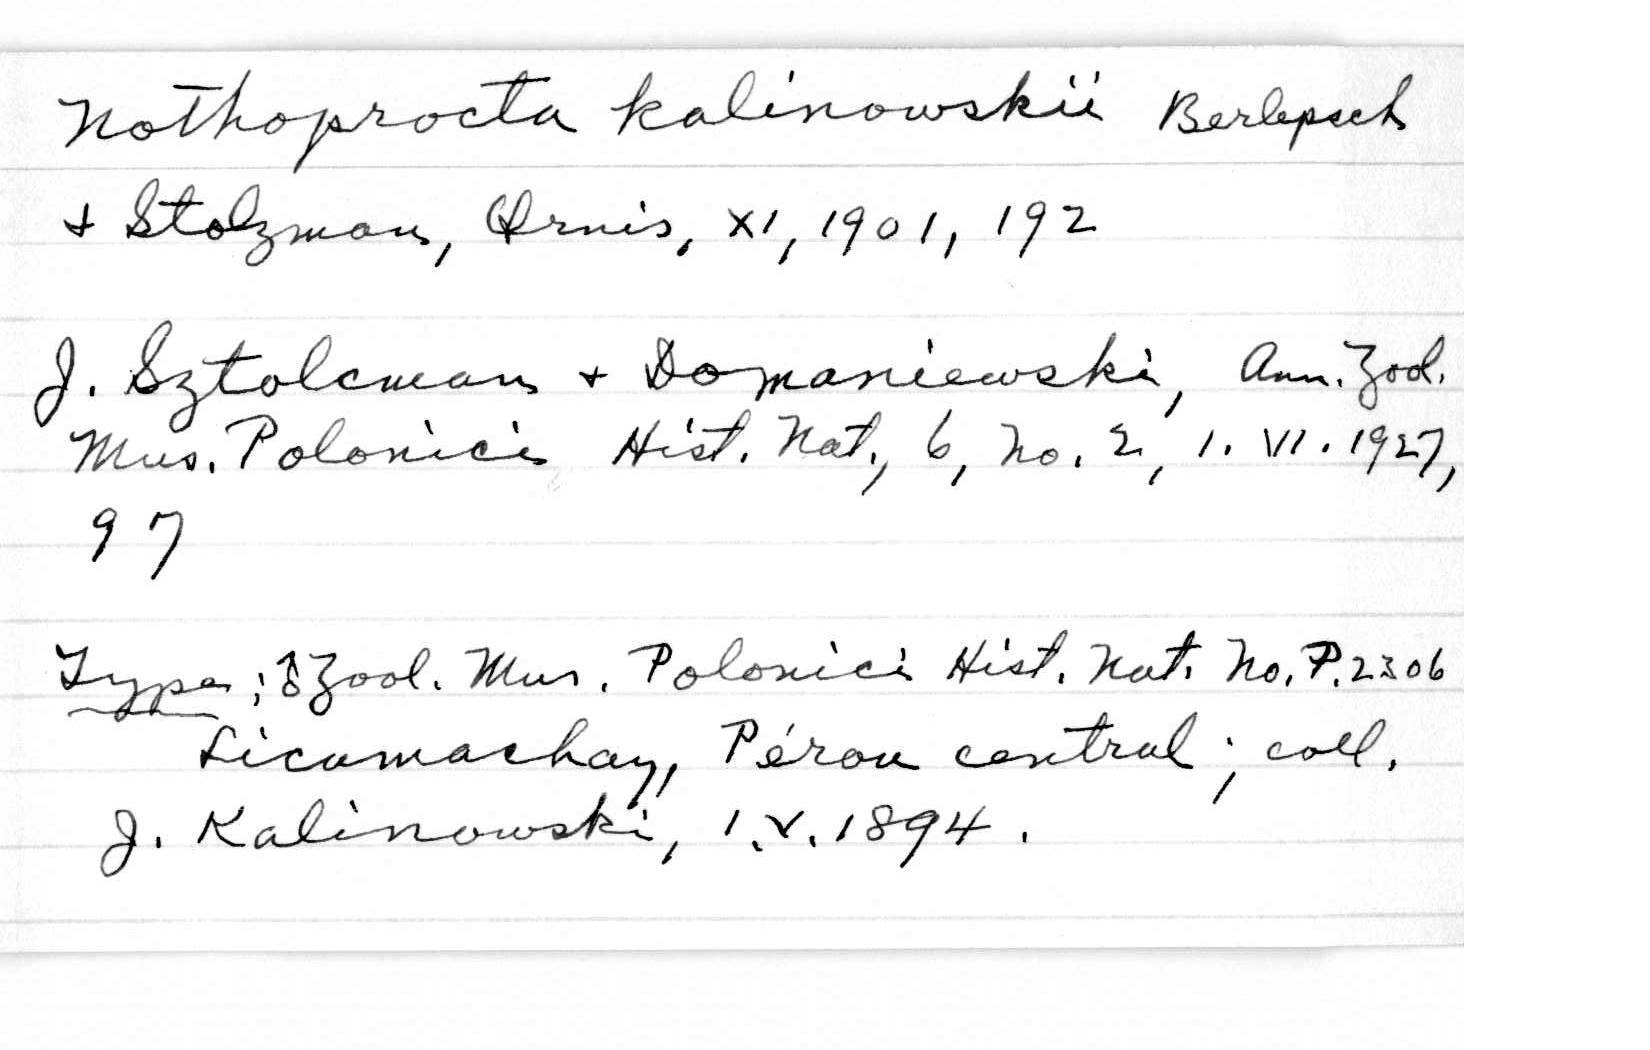 Nothoprocta kalinowskii Berlepsch
& Stolzman, Ornis, XI, 1901, 192
J. Sztolcman & Domaniewski, Ann. Zool.
Mus. Polonici Hist. Nat., 6, No. 2, 1. VI. 1927,
97
Type; ♂ Zool. Mus. Polonici Hist. Nat. No. P. 2306
Licamachay, Pérou central; coll.
J. Kalinowski, 1.V.1894.